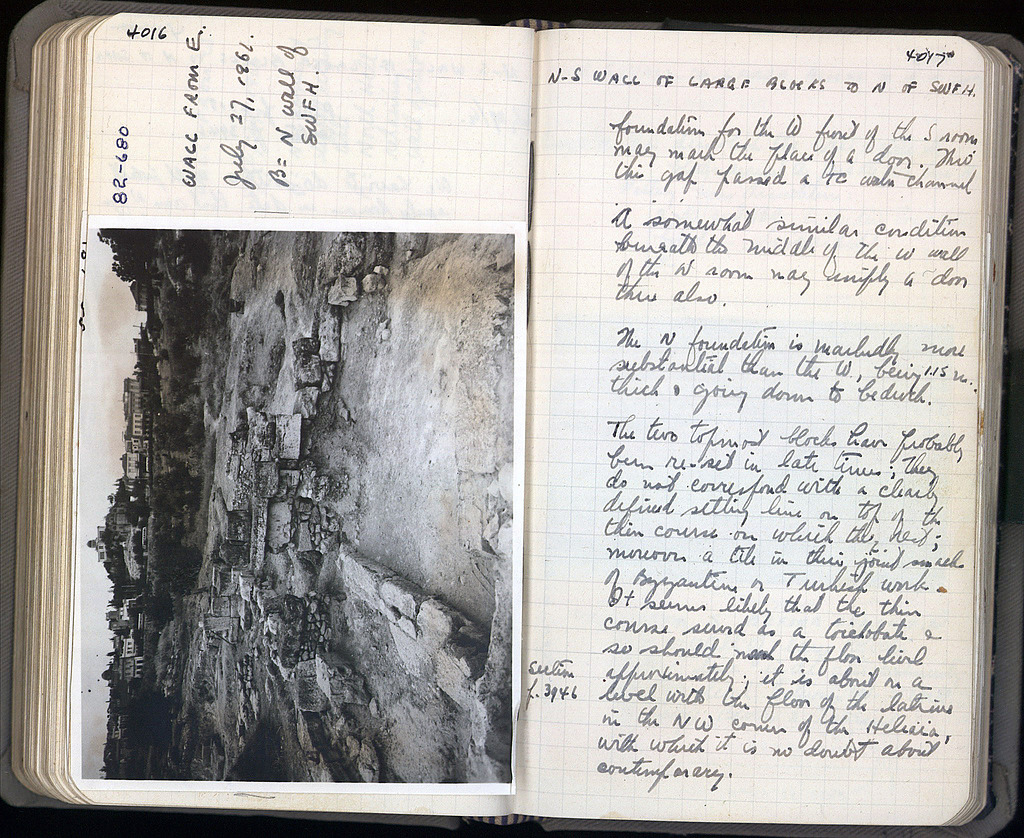 4016
82-680
WALL FROM E.
July 27, 196
B = N wall of
SWFH.
4017
N-S WALL OF LARGE BLOCKS TO N OF SWFH.
foundation for the W front of the S room
may mark the place of a door. Thro
this gap passed a TC water channel
A somewhat similar condition
beneath the middle of the W wall
of the W room may imply a door
there also.
The N foundation is markedly more
substantial than the W, being 1.15 m.
thick & going down to bedrock.
The two topmost blocks have probably
been re-set in late times; they
do not correspond with a clearly
defined setting line on top of the
thin course on which they rest;
moreover a tile in their joint smacks
of Byzantine or Turkish work.
It seems likely that the thin
course served as a toichobate &
so should mark the floor level
approximately; it is about on a
level with the floor of the latrine
in the NW corner of the Heliaia,
with which it is no doubt about
contemporary.
Section
p. 3946